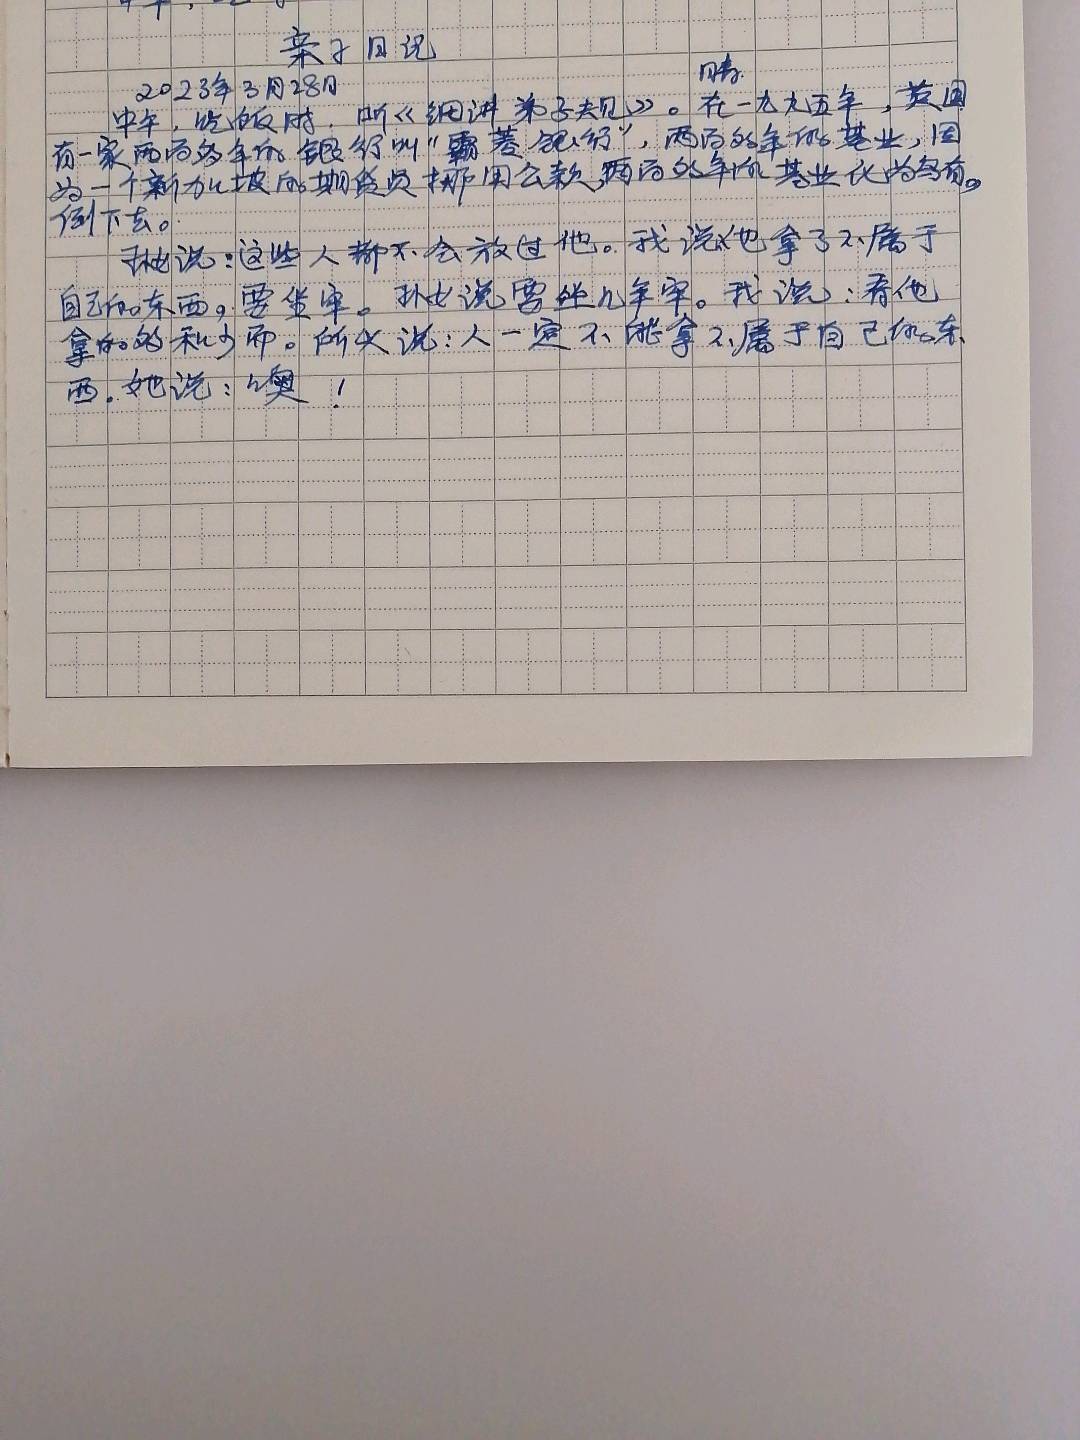 亲子日记
2023年3月28日 晴
中午，吃饭时，听《细讲弟子规》。在一九九五年，英国
有一家两百多年的银行叫“霸菱银行”，两百多年的基业，因
为一个新加坡的期货员挪用公款，两百多年的基业化为乌有。
倒下去。
说：这些人都不会放过他。我说他拿了不属于
自己的东西，要坐牢。说要坐几年牢。我说：看他
拿的多和少而。所以说：人一定不能拿不属于自己的东
西。她说：噢！